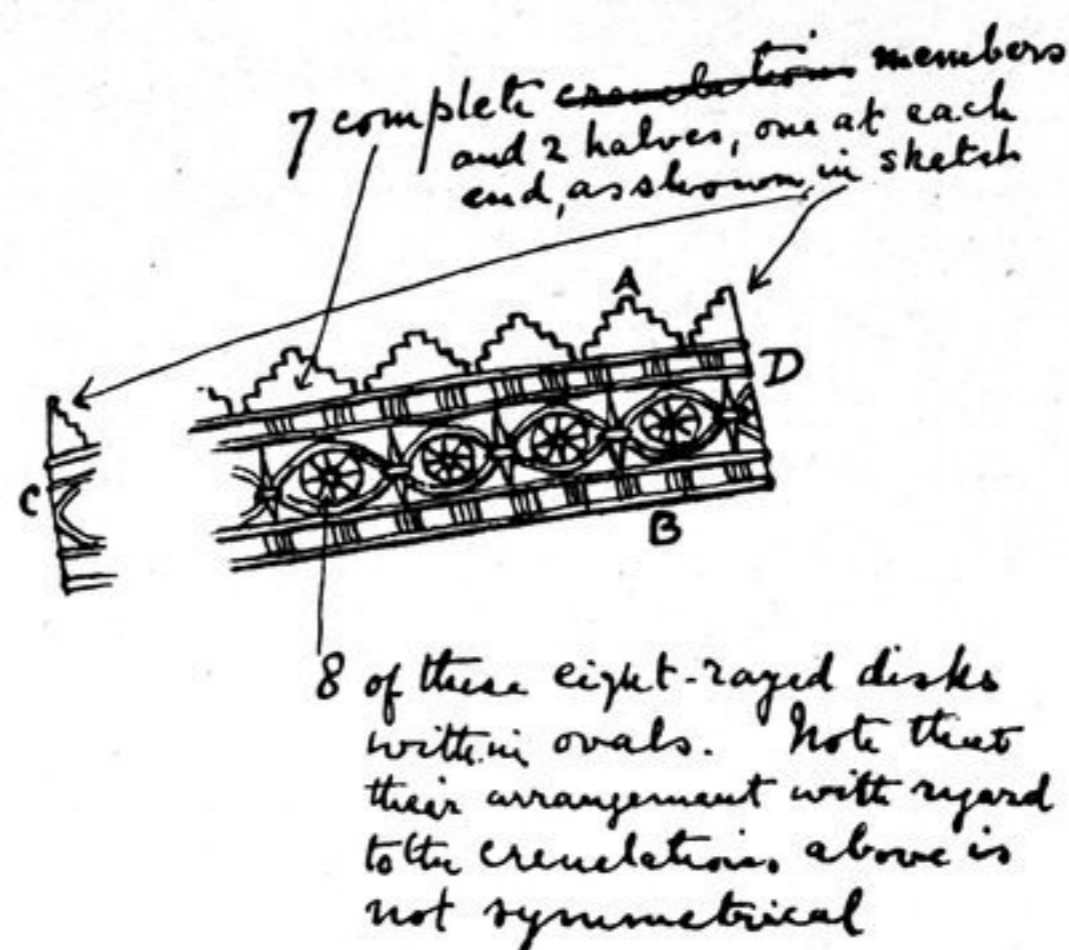 7 complete crenelations members
and 2 halves, one at each
end, as shown in sketch
A
D
C
B
8 of these eight-rayed disks
within ovals. Note that
their arrangement with regard
to the crenelations above is
not symmetrical